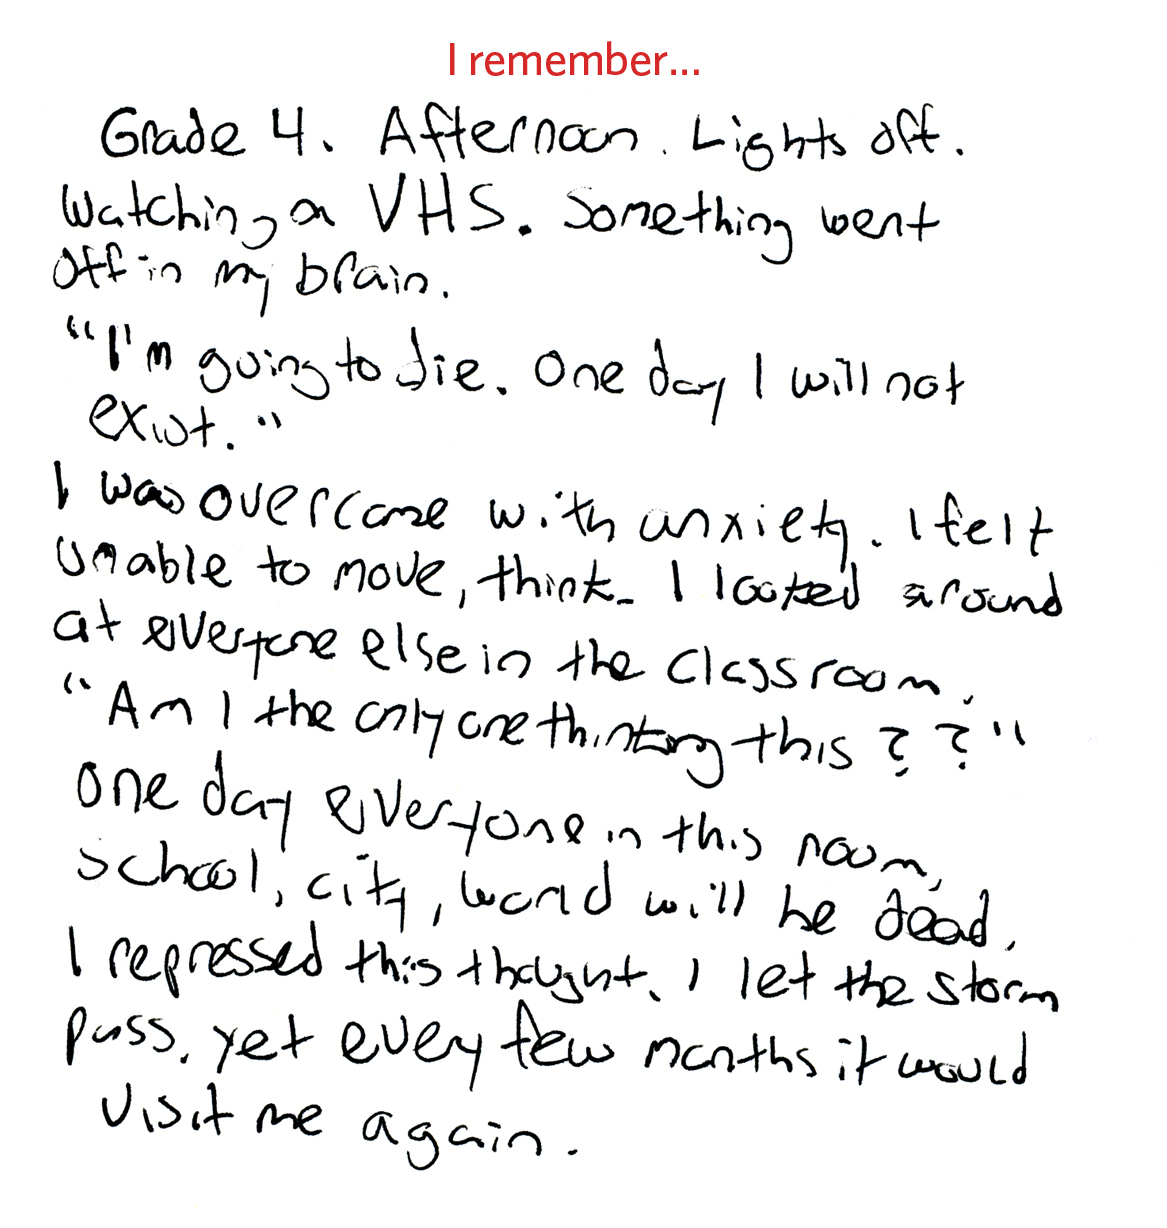 I remember...
Grade 4. Afternoon. Lights off.
Watching a VHS. Something went
off in my brain.
"I'm going to die. One day I will not
exist."
I was overcome with anxiety. I felt
unable to move, think. I looked around
at everyone else in the classroom.
"Am I the only one thinking this??"
One day everyone in this room,
school, city, world will be dead.
I repressed this thought. I let the storm
pass. yet every few months it would
visit me again.